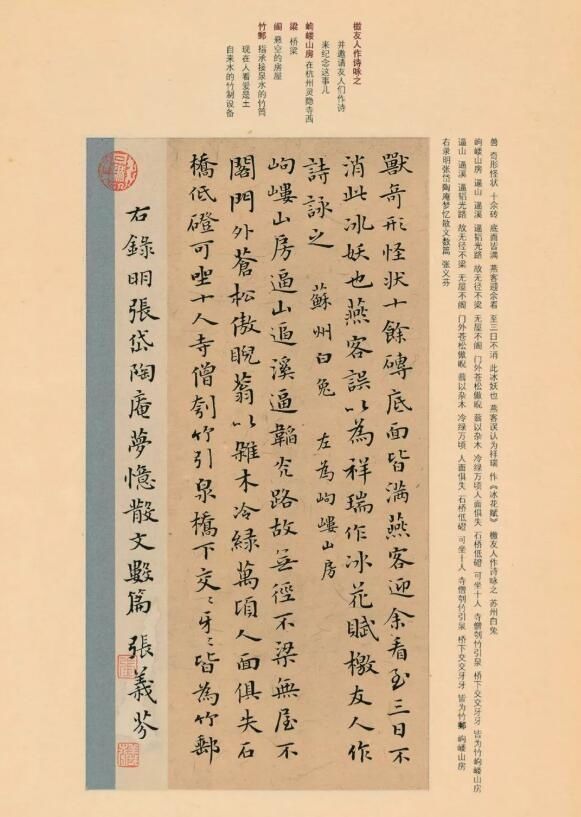 檄友人作诗咏之
并邀请友人们作诗
来纪念这事儿
岣嵝山房 在杭州灵隐寺西
梁 桥梁
阁 悬空的房屋
竹邮 指承接泉水的竹筒
现在人看爱是土
自来水的竹制设备
兽 奇形怪状 十余砖 底面皆满 燕客迎余看 至三日不消 此冰妖也 燕客误认为祥瑞 作《冰花赋》 檄友人作诗咏之 苏州白兔
岣嵝山房 逼山 逼溪 逼韬光路 故无径不梁 无屋不阁 门外苍松傲睨 蓊以杂木 冷绿万顷人面俱失 石桥低磴 可坐十人 寺僧刳竹引泉 桥下交交牙牙 皆为竹岣嵝山房
逼山 逼溪 逼韬光路 故无径不梁 无屋不阁 门外苍松傲睨 蓊以杂木 冷绿万顷 人面俱失 石桥低磴 可坐十人 寺僧刳竹引泉 桥下交交牙牙 皆为竹邮 岣嵝山房
右录明张岱陶庵梦忆散文数篇 张义芬
獸奇形怪状十餘磚底面皆满燕客迎余看至三日不
消此冰妖也燕客誤以為祥瑞作冰花賦檄友人作
詩詠之 蘇州白兔 左為岣嶁山房
岣嶁山房逼山逼溪逼韜光路故無徑不梁無屋不
閣門外蒼松傲睨蓊以雜木冷緑萬頃人面俱失石
橋低磴可坐十人寺僧刳竹引泉橋下交〻牙〻皆為竹郵
右錄明張岱陶庵夢憶散文數篇 張義芬